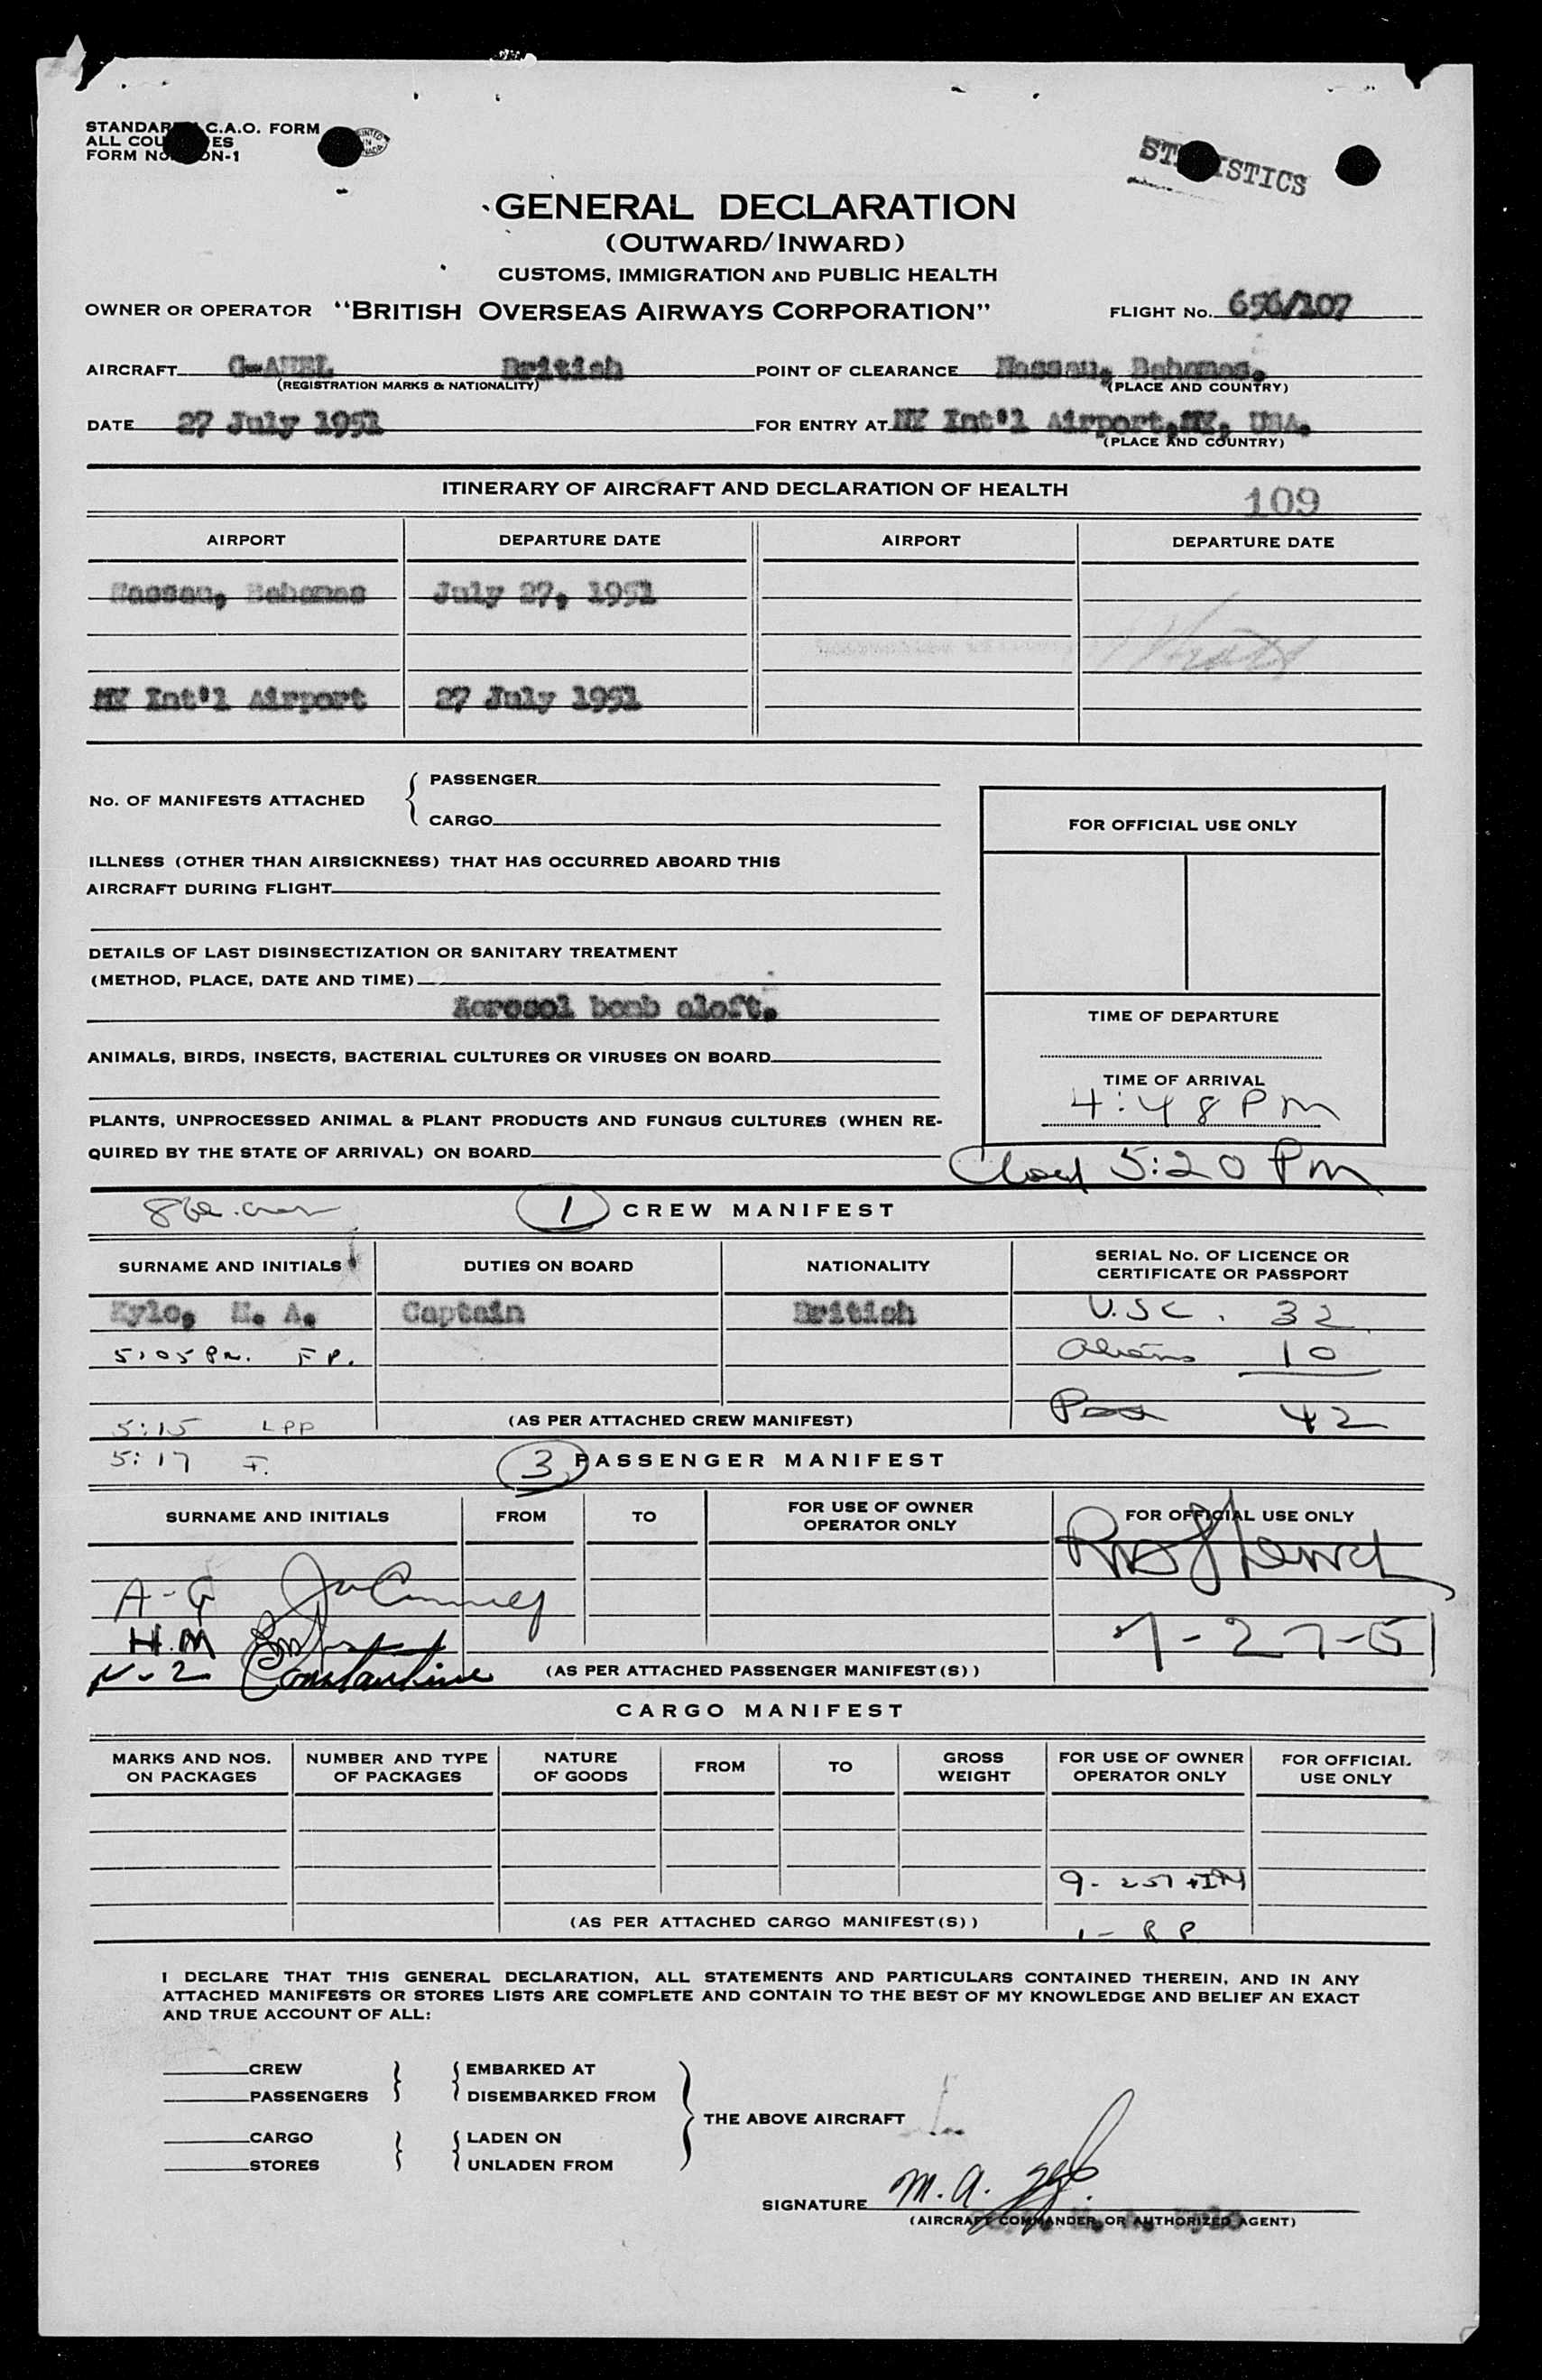 STANDARD I.C.A.O. FORM
ALL COUNTRIES
FORM No. CON-1
PRINTED IN CANADA
STATISTICS
GENERAL DECLARATION
(OUTWARD/INWARD)
CUSTOMS, IMMIGRATION AND PUBLIC HEALTH
OWNER OR OPERATOR "BRITISH OVERSEAS AIRWAYS CORPORATION" FLIGHT No. 656/107
AIRCRAFT British POINT OF CLEARANCE Nassau, Bahamas.
(REGISTRATION MARKS & NATIONALITY) (PLACE AND COUNTRY)
DATE 27 July 1951 FOR ENTRY AT NY Int'l Airport,NY, USA.
(PLACE AND COUNTRY)
ITINERARY OF AIRCRAFT AND DECLARATION OF HEALTH 109
AIRPORT DEPARTURE DATE AIRPORT DEPARTURE DATE
Nassau, Bahamas July 27, 1951
NY Int'l Airport 27 July 1951
No. OF MANIFESTS ATTACHED { PASSENGER
CARGO
FOR OFFICIAL USE ONLY
ILLNESS (OTHER THAN AIRSICKNESS) THAT HAS OCCURRED ABOARD THIS
AIRCRAFT DURING FLIGHT
DETAILS OF LAST DISINSECTIZATION OR SANITARY TREATMENT
(METHOD, PLACE, DATE AND TIME)
Aerosol bomb aloft.
TIME OF DEPARTURE
ANIMALS, BIRDS, INSECTS, BACTERIAL CULTURES OR VIRUSES ON BOARD
TIME OF ARRIVAL
4:48 PM
PLANTS, UNPROCESSED ANIMAL & PLANT PRODUCTS AND FUNGUS CULTURES (WHEN RE-
QUIRED BY THE STATE OF ARRIVAL) ON BOARD
Closed 5:20 PM
1 CREW MANIFEST
SURNAME AND INITIALS DUTIES ON BOARD NATIONALITY SERIAL No. OF LICENCE OR
CERTIFICATE OR PASSPORT
Kylo, M. A. Captain British U.S.C. 32
5:05 PM. F P. Aliens 10
5:15 LPP (AS PER ATTACHED CREW MANIFEST) Pass 42
5:17 F.
3 PASSENGER MANIFEST
SURNAME AND INITIALS FROM TO FOR USE OF OWNER
OPERATOR ONLY FOR OFFICIAL USE ONLY
A-G
H.M 7-27-51
N-Z Constantine (AS PER ATTACHED PASSENGER MANIFEST(S))
CARGO MANIFEST
MARKS AND NOS.
ON PACKAGES NUMBER AND TYPE
OF PACKAGES NATURE
OF GOODS FROM TO GROSS
WEIGHT FOR USE OF OWNER
OPERATOR ONLY FOR OFFICIAL
USE ONLY
9-
(AS PER ATTACHED CARGO MANIFEST(S))
1- R P
I DECLARE THAT THIS GENERAL DECLARATION, ALL STATEMENTS AND PARTICULARS CONTAINED THEREIN, AND IN ANY
ATTACHED MANIFESTS OR STORES LISTS ARE COMPLETE AND CONTAIN TO THE BEST OF MY KNOWLEDGE AND BELIEF AN EXACT
AND TRUE ACCOUNT OF ALL:
CREW EMBARKED AT
PASSENGERS DISEMBARKED FROM
THE ABOVE AIRCRAFT
CARGO LADEN ON
STORES UNLADEN FROM
SIGNATURE M. A. Kylo
(AIRCRAFT COMMANDER OR AUTHORIZED AGENT)